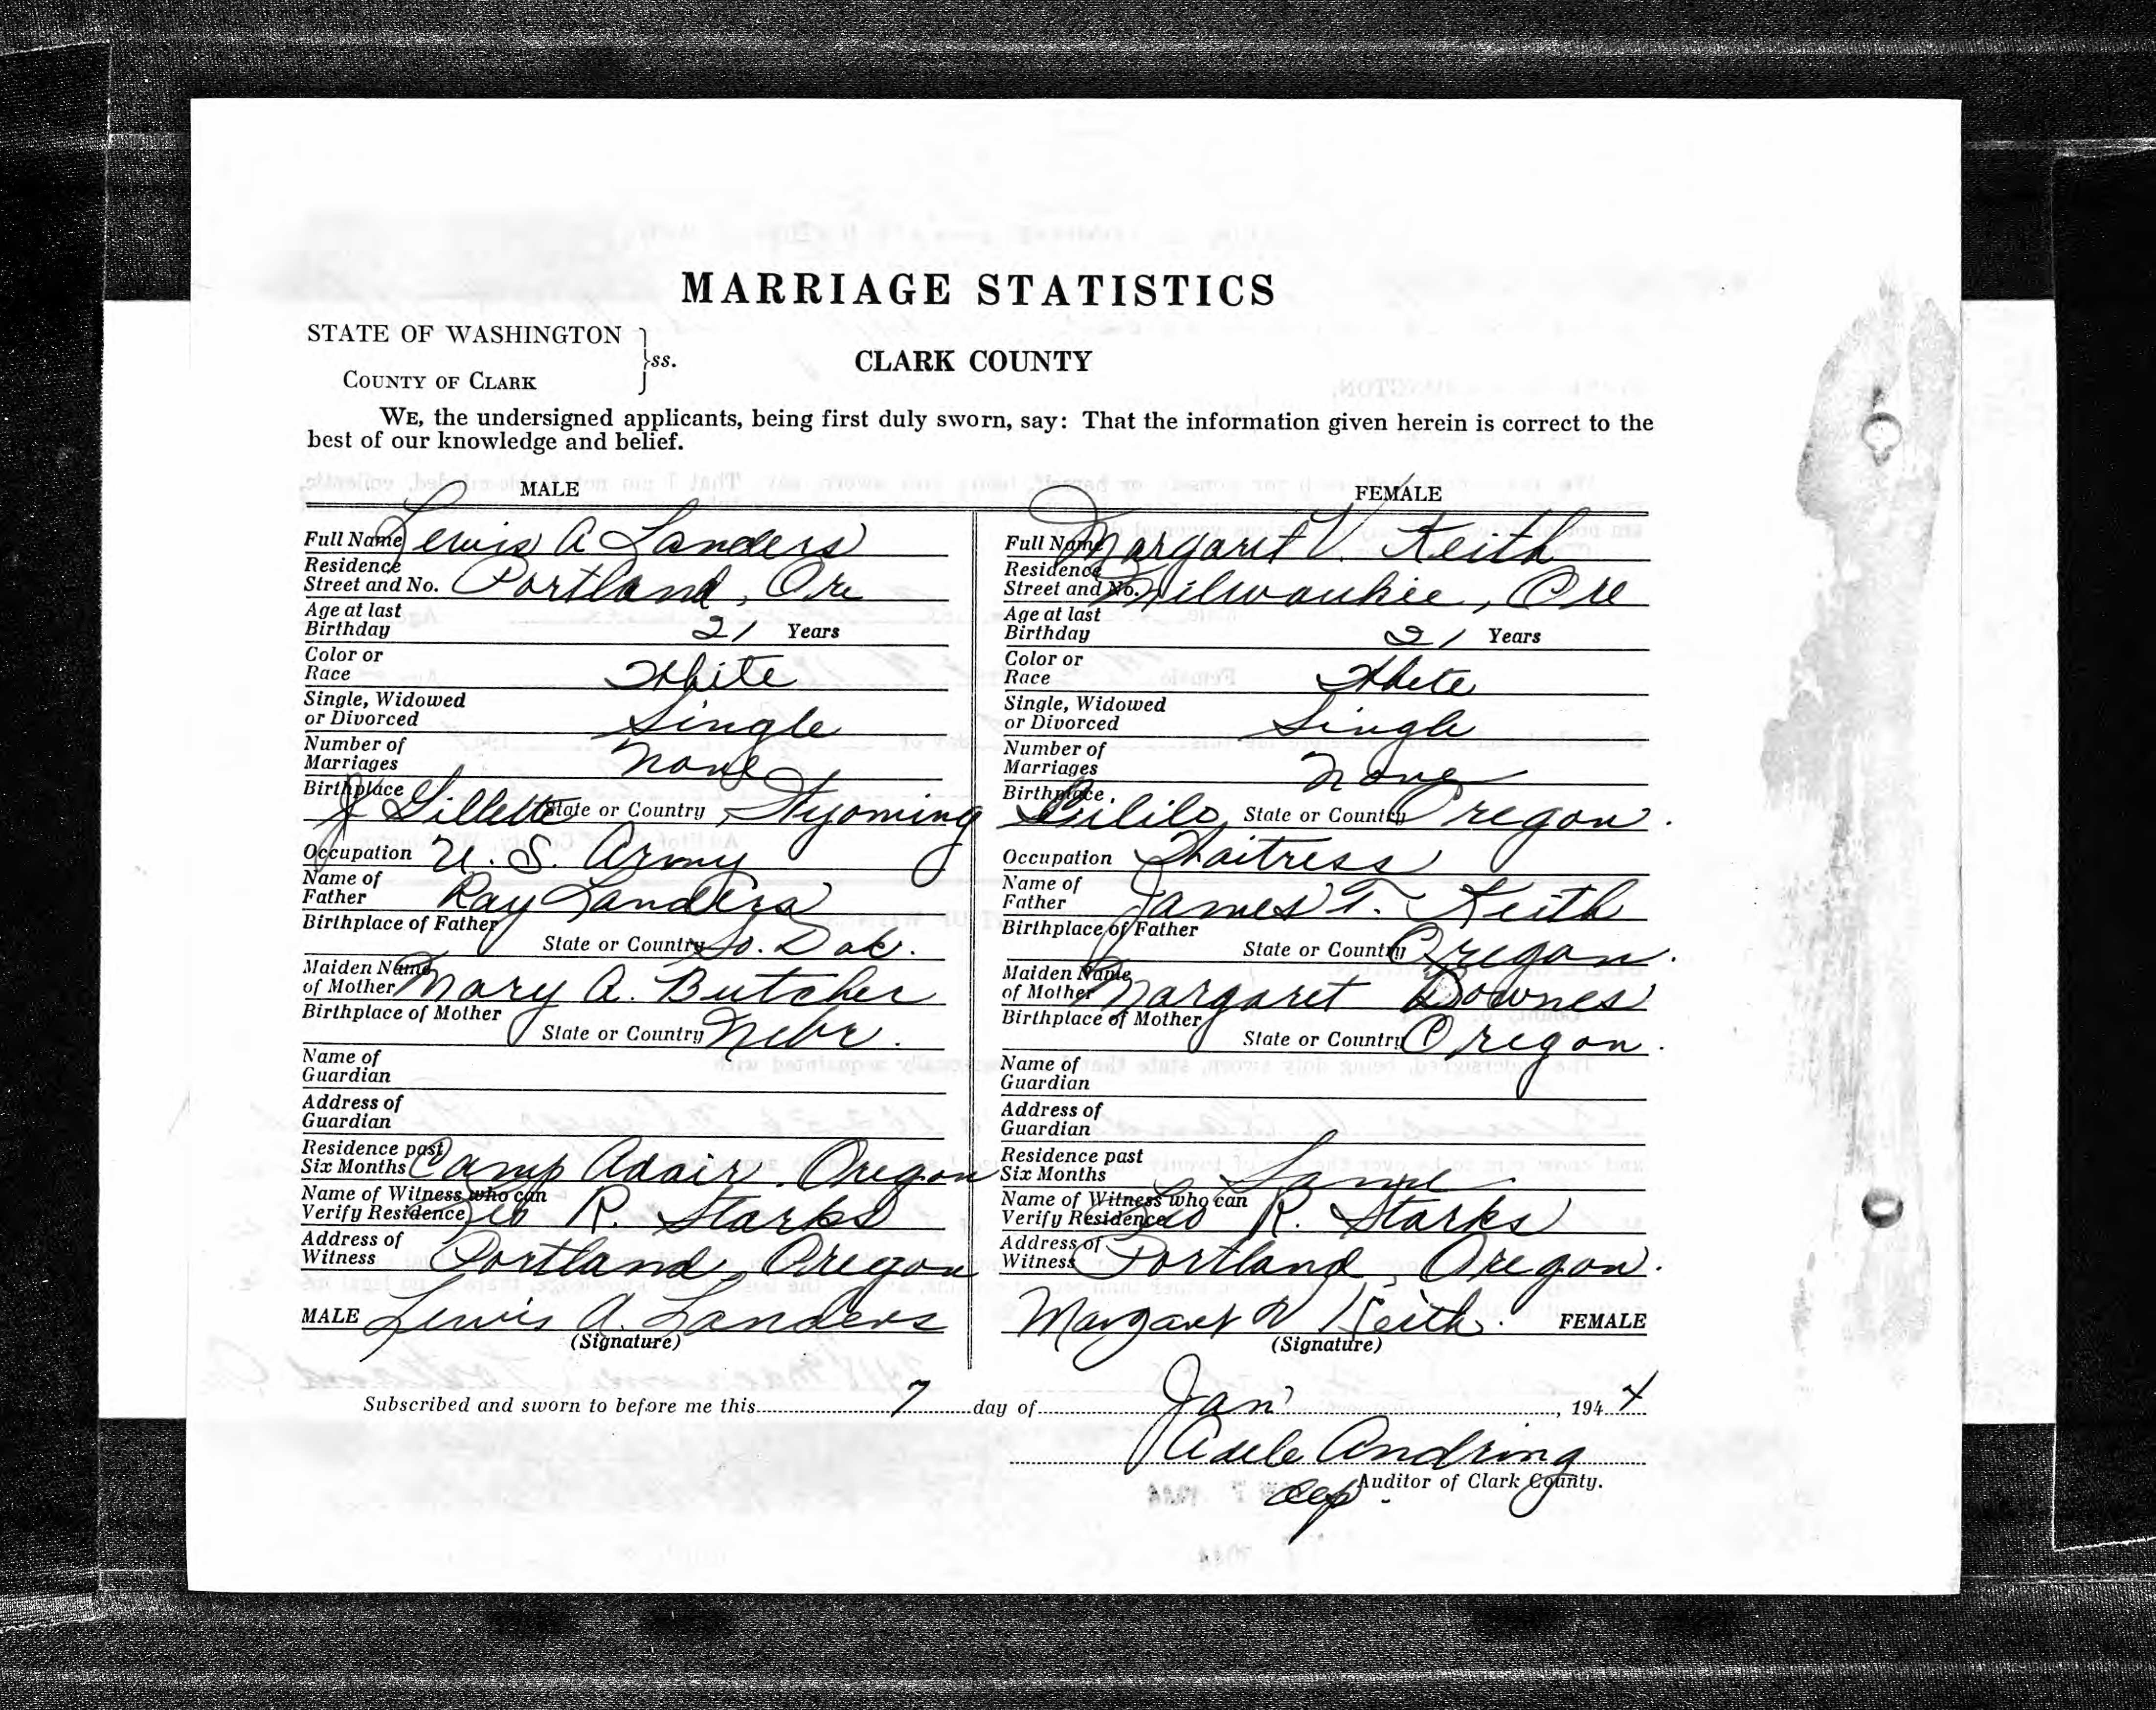 MARRIAGE STATISTICS
STATE OF WASHINGTON
ss.
COUNTY OF CLARK
CLARK COUNTY
WE, the undersigned applicants, being first duly sworn, say: That the information given herein is correct to the
best of our knowledge and belief.
MALE
Full Name Lewis A Landers
Residence
Street and No. Portland, Ore
Age at last
Birthday 21 Years
Color or
Race White
Single, Widowed
or Divorced Single
Number of
Marriages None
Birthplace
Gillette State or Country , Wyoming
Occupation U. S. Army
Name of
Father Ray Landers
Birthplace of Father
State or Country So. Dak.
Maiden Name
of Mother Mary A. Butcher
Birthplace of Mother
State or Country Nebr.
Name of
Guardian
Address of
Guardian
Residence past
Six Months Camp Adair, Oregon
Name of Witness who can
Verify Residence Geo R. Starks
Address of
Witness Portland, Oregon
MALE Lewis A. Landers
(Signature)
FEMALE
Full Name Margaret V. Keith
Residence
Street and No. Milwaukie, Ore
Age at last
Birthday 21 Years
Color or
Race White
Single, Widowed
or Divorced Single
Number of
Marriages None
Birthplace
State or Country Oregon.
Occupation Waitress
Name of
Father James T. Keith
Birthplace of Father
State or Country Oregon.
Maiden Name
of Mother Margaret Downes
Birthplace of Mother
State or Country Oregon.
Name of
Guardian
Address of
Guardian
Residence past
Six Months Same.
Name of Witness who can
Verify Residence Geo R. Starks
Address of
Witness Portland, Oregon.
Margaret V Keith. FEMALE
(Signature)
Subscribed and sworn to before me this 7 day of Jan , 1944
Adele Andring
Auditor of Clark County.
Dep.